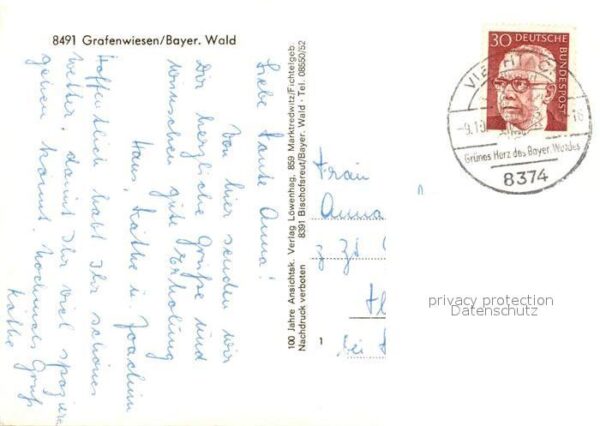 8491 Grafenwiesen/Bayer. Wald
Liebe Tante Anna!
Von hier senden wir
Dir herzliche Grüße und
wünschen gute Erholung
Hans, Käthe u. Joachim
Hoffentlich habt Ihr schönes
Wetter, damit Ihr viel spazieren
gehen könnt. Nochmals Gruß
Käthe
100 Jahre Ansichtsk. Verlag Löwenhag, 859 Marktredwitz/Fichtelgeb.
8391 Bischofsreut/Bayer. Wald · Tel. 08550/52
Nachdruck verboten
1
Frau
Anna
z Zt
bei
30 DEUTSCHE
BUNDESPOST
VIECHT
-9.10
-16
Grünes Herz des Bayer. Waldes
8374
privacy protection
Datenschutz